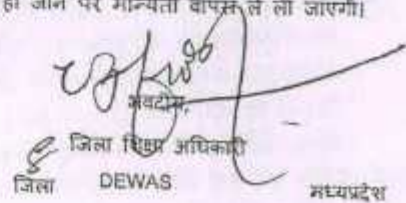 हो जाने पर मान्यता वापस ले ली जाएगी।
भवदीय,
जिला शिक्षा अधिकारी
जिला DEWAS मध्यप्रदेश